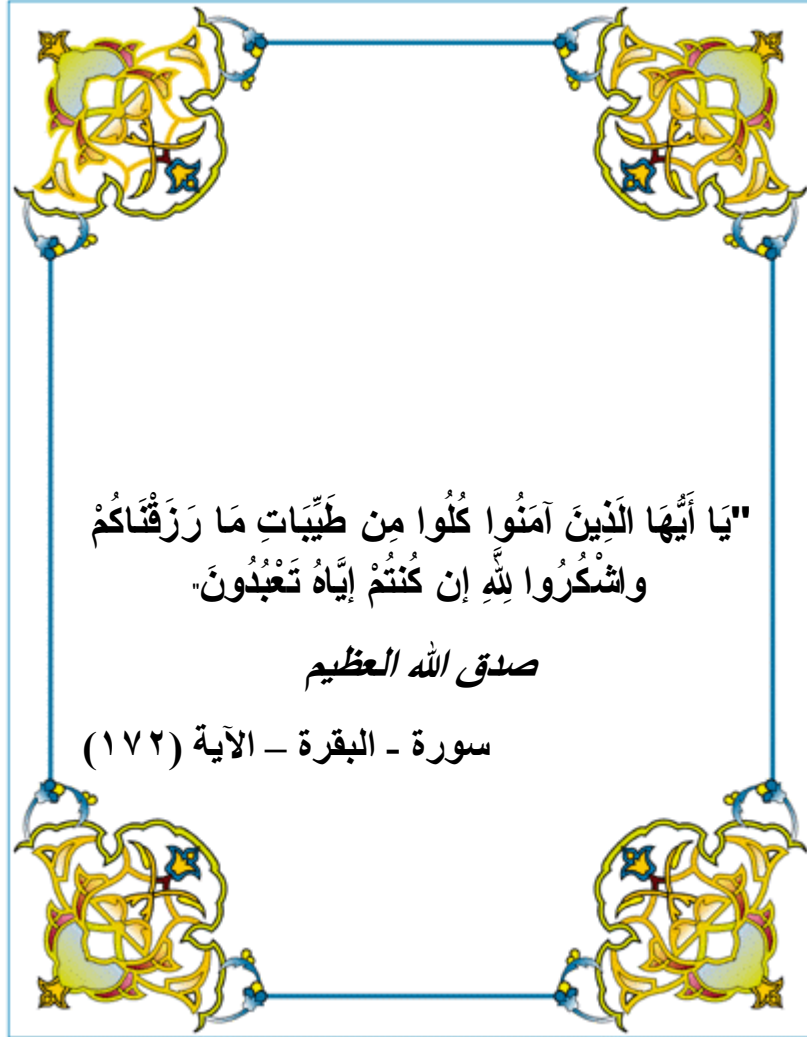 "يَا أَيُّهَا الَذِينَ آمَنُوا كُلُوا مِن طَيِّبَاتِ مَا رَزَقْنَاكُمْ
واشْكُرُوا لِلَّهِ إن كُنتُمْ إيَّاهُ تَعْبُدُونَ"
صدق الله العظيم
سورة - البقرة – الآية (١٧٢)